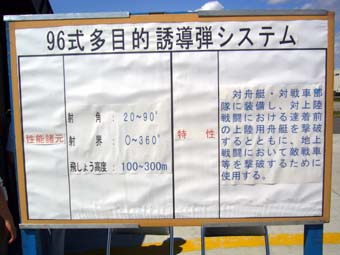 96式多目的誘導弾システム
性能諸元
射角：20~90°
射界：0~360°
飛しょう高度：100~300m
特性
対舟艇・対戦車部
隊に装備し、対上陸
戦闘における達着前
の上陸用舟艇を撃破
するとともに、地上
戦闘において敵戦車
等を撃破するために
使用する。